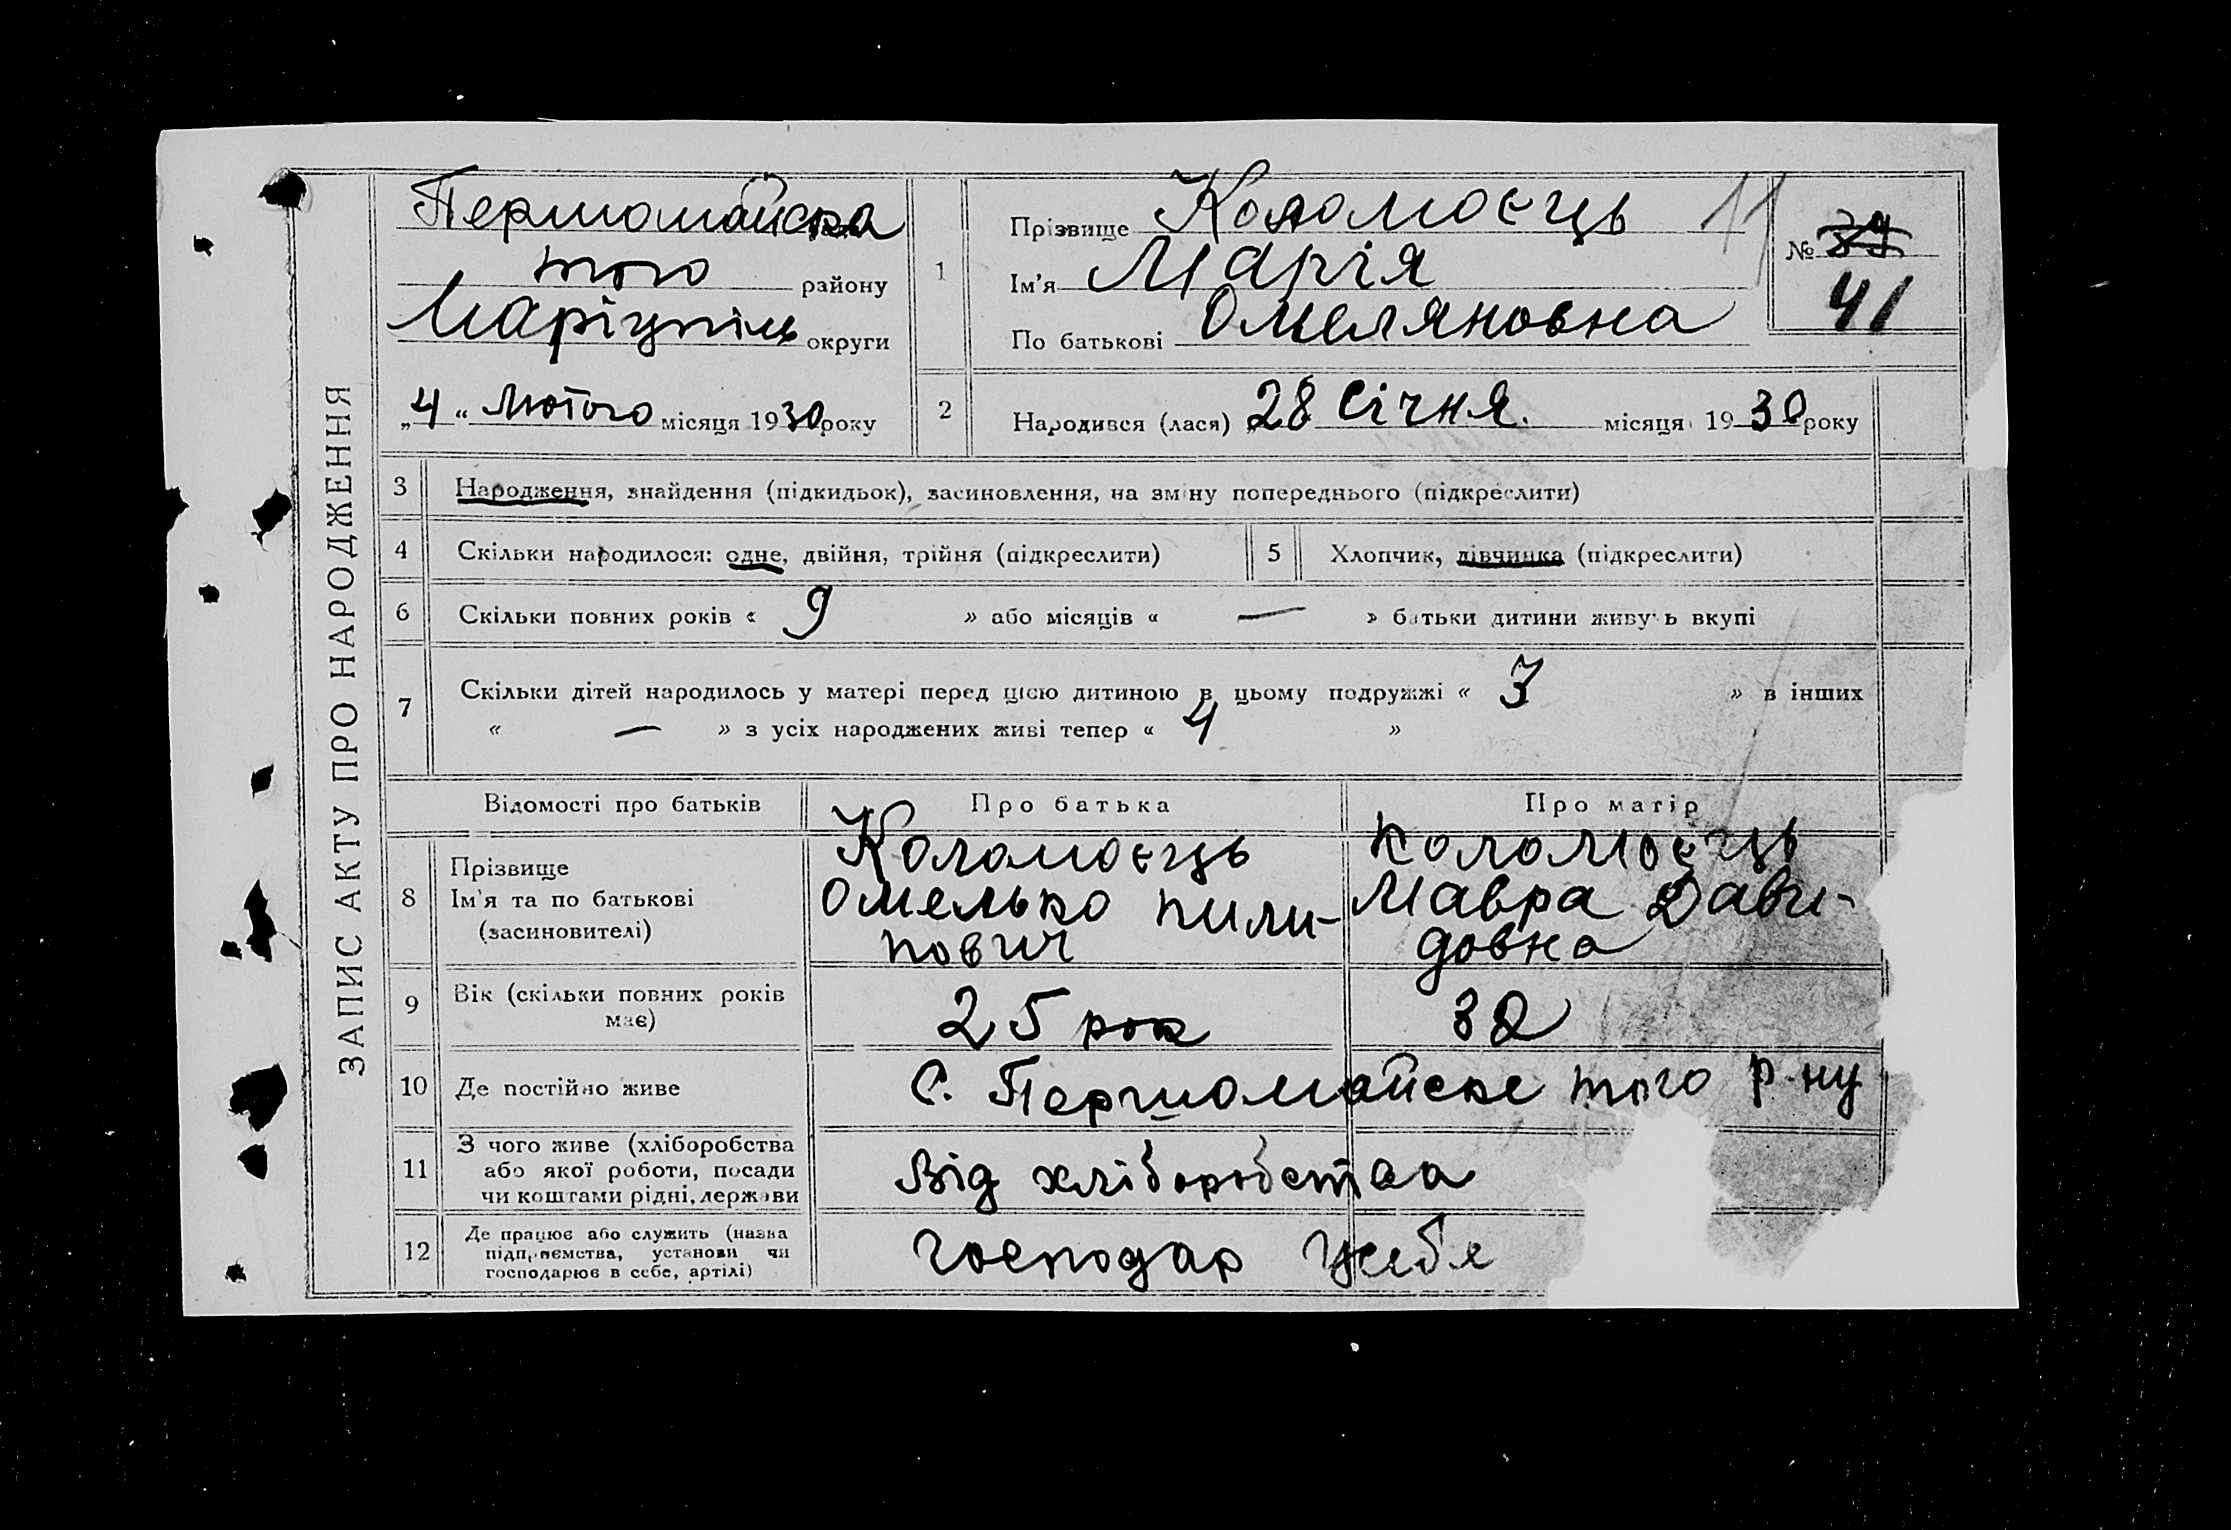 ЗАПИС АКТУ ПРО НАРОДЖЕННЯ
Першомайска
того району
Маріупіль округи
„4“ Лютого місяця 1930 року
1
Прізвище Коломоєць 11
Ім'я Марія
По батькові Омеляновна
№ 39
41
2 Народився (лася) „28 Січня. місяця 1930 року
3 Народження, знайдення (підкидьок), засиновлення, на зміну попереднього (підкреслити)
4 Скільки народилося: одне, двійня, трійня (підкреслити)
5 Хлопчик, дівчинка (підкреслити)
6 Скільки повних років « 9 » або місяців « — » батьки дитини живуть вкупі
7 Скільки дітей народилось у матері перед цією дитиною в цьому подружжі « 3 » в інших
« — » з усіх народжених живі тепер « 4 »
Відомості про батьків Про батька Про матір
8 Прізвище
Ім'я та по батькові
(засиновителі)
Коломоєць
Омелько Пили-
пович
Коломоєць
Мавра Дави-
довна
9 Вік (скільки повних років
має)
25 рок 32
10 Де постійно живе С. Першомайске того р-ну
11 З чого живе (хліборобства
або якої роботи, посади
чи коштами рідні, держави
Від хліборобства
12 Де працює або служить (назва
підприємства, установи чи
господарює в себе, артілі)
господар усебя